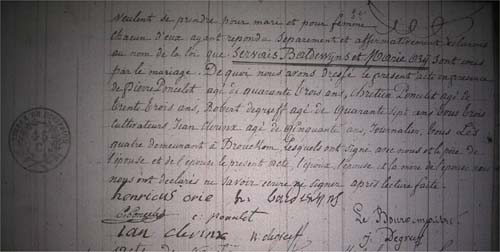 veulent se prendre pour mari et pour femme
chacun d'eux ayant repondu separement et affirmativement declarons
au nom de la loi que Servais Baldewyns et Marie Orij sont unis
par le mariage. De quoi nous avons dressé le present acte en presence
de Pierre Poncelet agé de quarante trois ans, Chretien Poncelet agé de
trente trois ans, Robert degrueff agé de quarante sept ans tous trois
cultivateurs Jean Clerinx agé de cinquante ans, journalier, tous Les
quatre demeurant à Lesquels ont signé avec nous et le pere de
l'epouse et de l'epoux le present acte, l'epoux l'epouse et la mere de l'epouse
nous ont declarés ne savoir ecrire ni signer après lecture faite.
henricus orie
c. ponselet
Le Bourgmaitre
ian clerinx
J. Degrueff